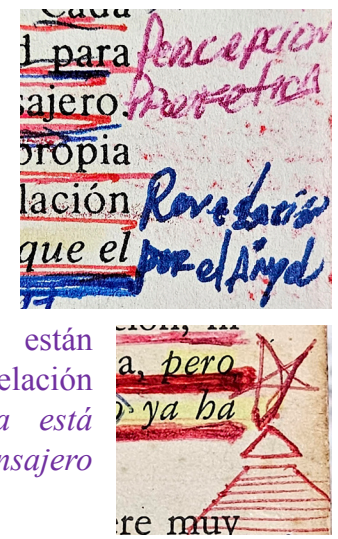 Cada
d para
sajero.
propia
lación
que el
Percepcion
Profetica
Revelación
por el Angel
están
elación
a está
nsajero
ción, ni
a, pero
o ya ha
ere muy